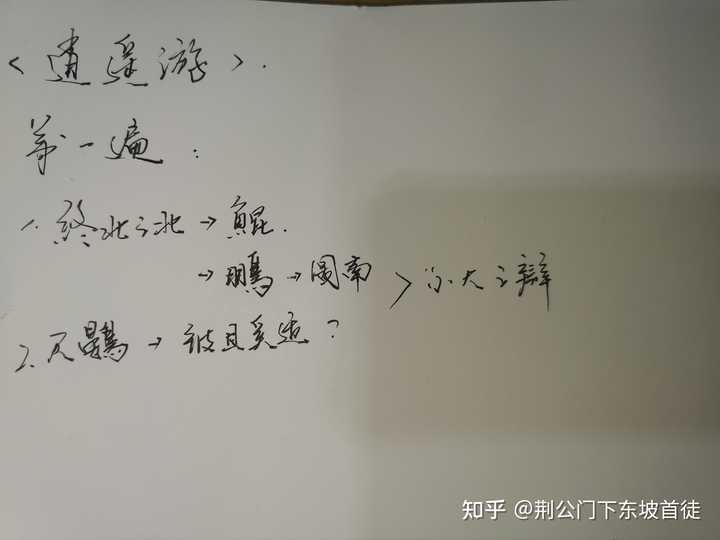 <逍遥游>.
第一遍:
1. 终北之北→鲲.
→鹏→图南 > 小大之辩
2. 尺鷃→彼且奚适?
知乎 @荆公门下东坡首徒